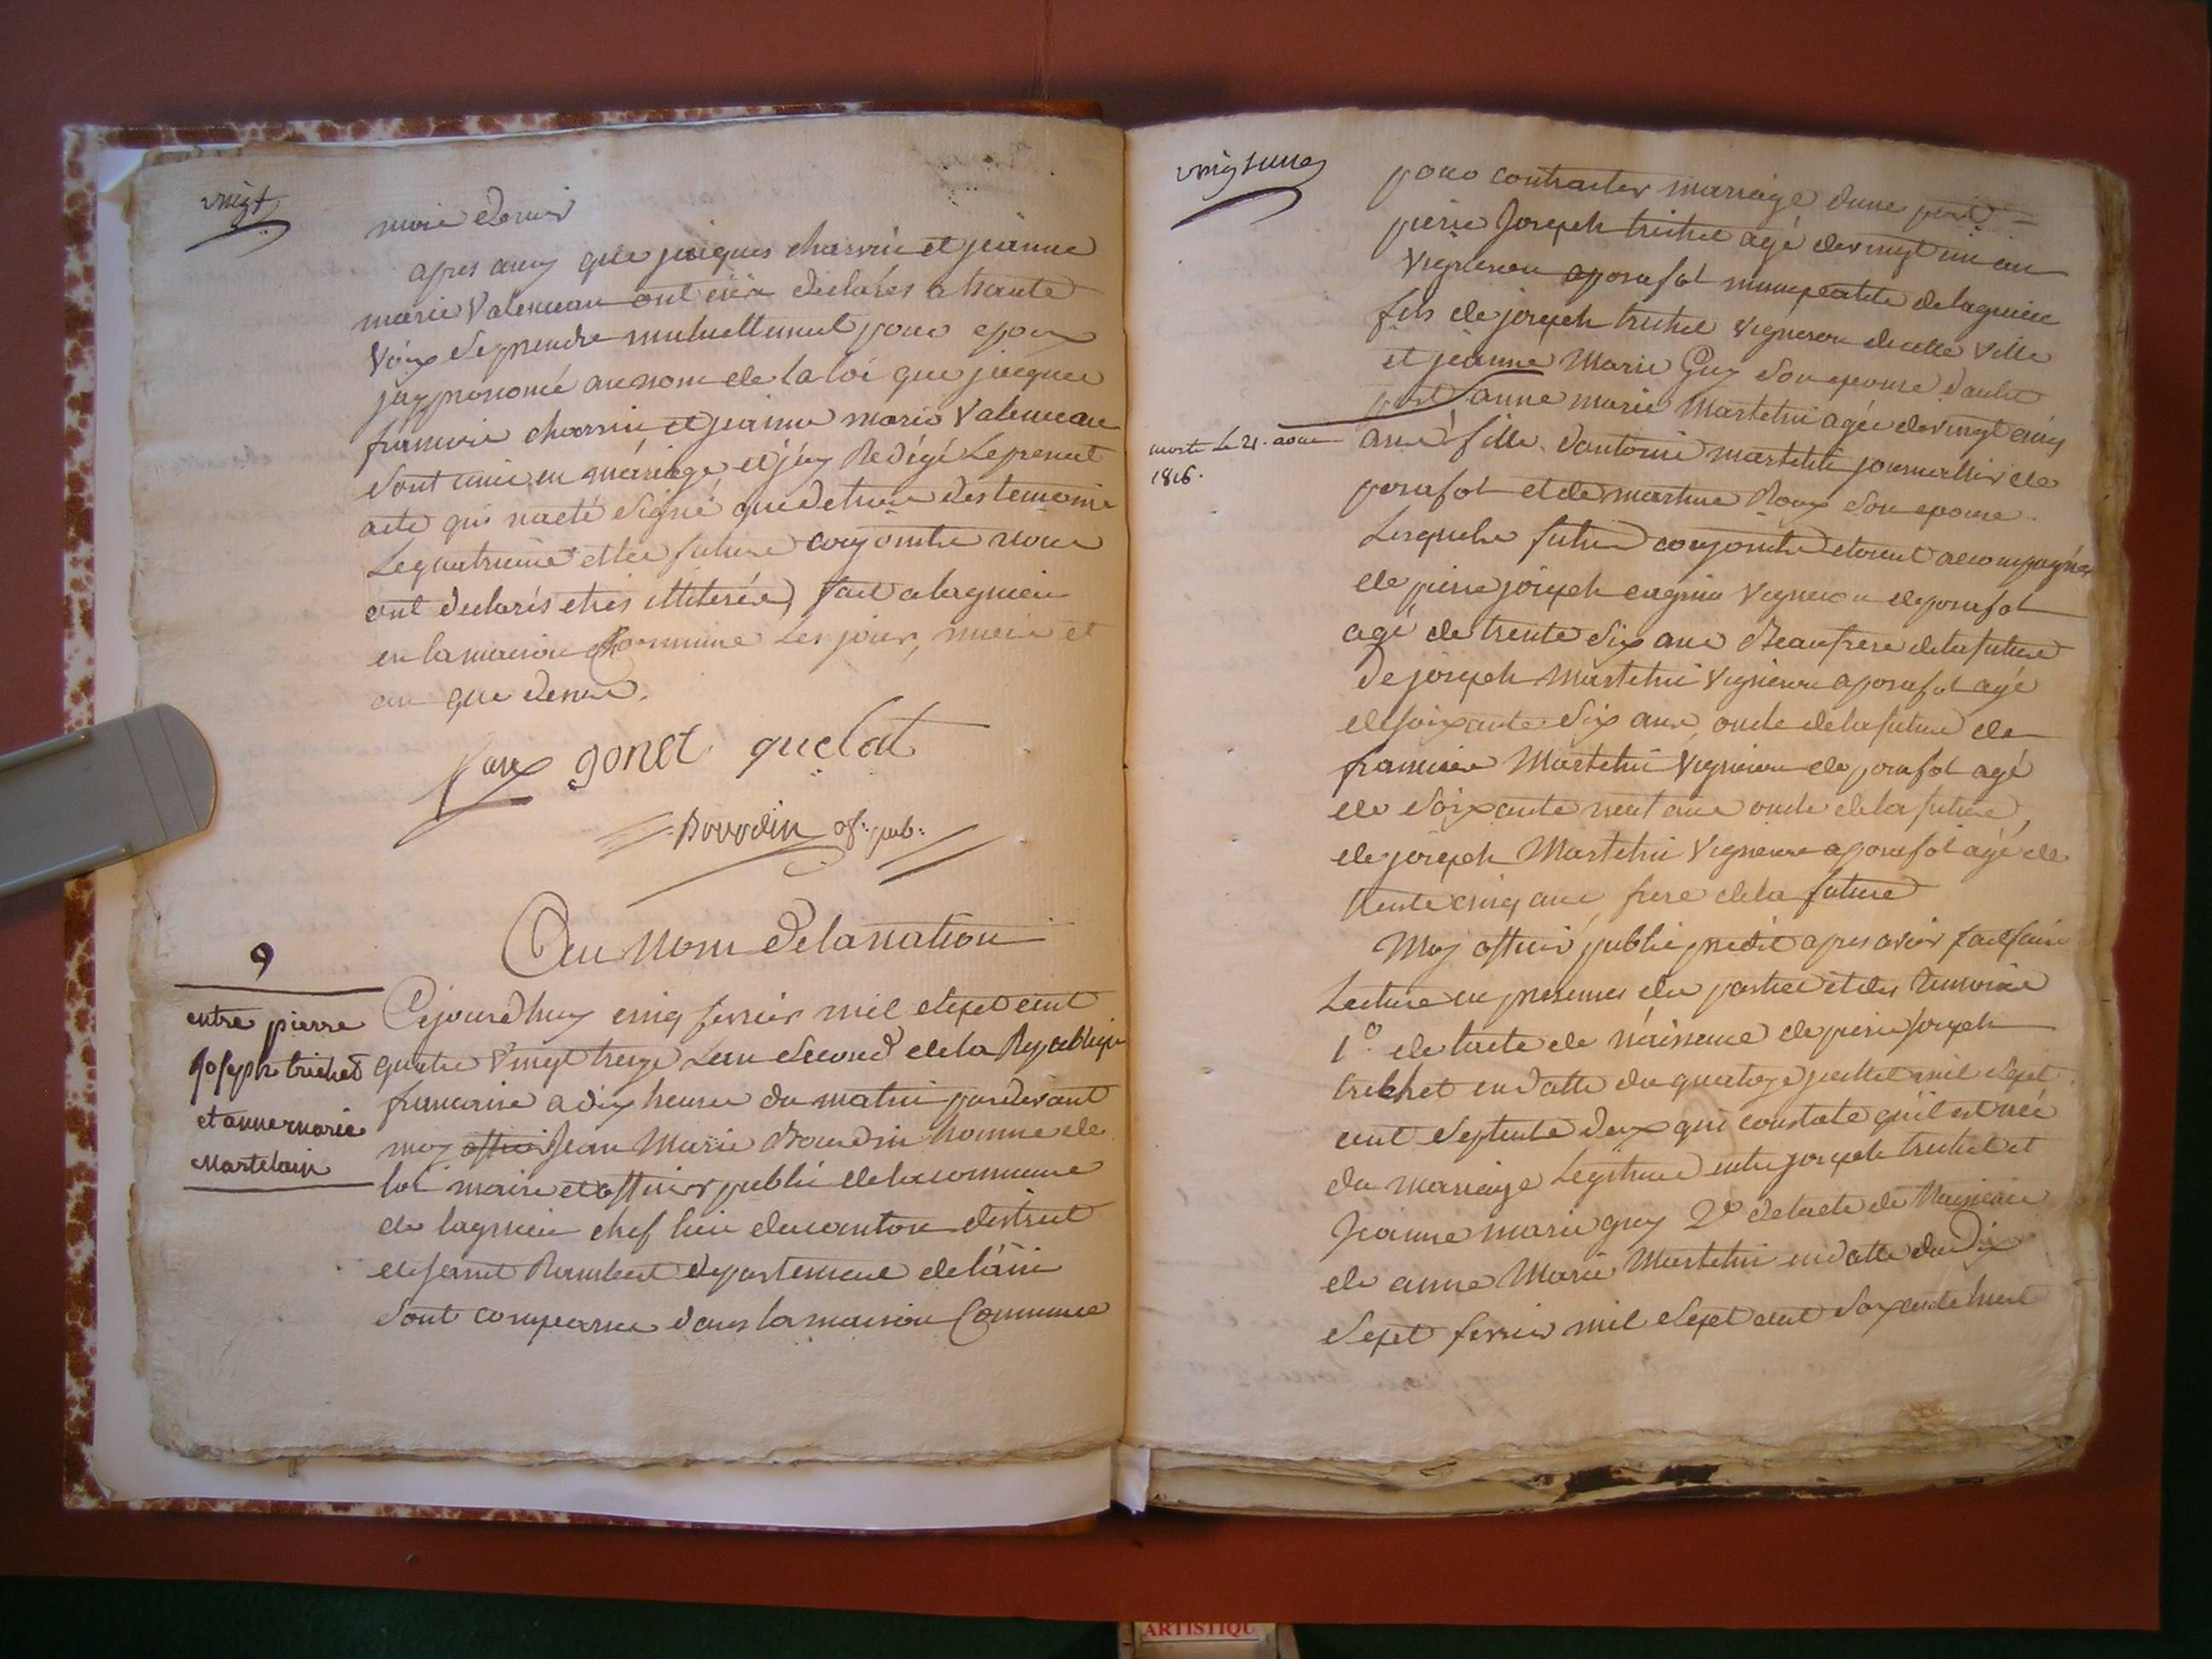 vingt
mois dernier
apres quoy que jacques charvin et jeanne
marie Valenceau ont eüe declarés a haute
Voix se prendre mutuellement pour epoux
jay prononcé au nom de la loi que jacques
francois charvin et jeanne marie Valenceau
sont unis en mariage, et jay Redigé Le present
acte qui na eté signé que de trois des temoins
Le quatrieme et les futurs conjointes nous
ont declarés etres illiterés, fait a lagnieu
en la maison Commune Les jour, mois et
an que dernier.
gonet quelat
Bourdin of: pub:
Au Nom de la nation
9
entre pierre
Joseph trichet
et anne marie
Martelain
Cejourdhuy cinq fevrier mil sept cent
quatre Vingt treize Lan Second de la Republique
francoise a dix heures du matin pardevant
moy Jean Marie Bourdin homme de
loi maire et officier public de la commune
de lagnieu chef lieu du canton district
de saint Rambert departement de lain
sont comparus dans la maison Commune
vingt une
pour contracter mariage dune part
pierre Joseph trichet agé de vingt un an
Vigneron a posafol municipalité de lagnieu
fils de joseph trichet Vigneron de cette Ville
et jeanne Marie Guy son epouse dautre
part anne marie Martelin agée de vingt cinq
morte Le 21. aout
1816.
ans fille dantoine martelin journallier de
posafol et de martine Roux son epouse
Lesquels futurs conjointe etoient accompagnés
de pierre joseph Vigneron de posafol
agé de trente six ans Beaufrere de la future
De joseph Martelin Vigneron a posafol agé
de soixante six ans, oncle de la future de
francois Martelin Vigneron de posafol agé
de soixante neuf ans oncle de la future,
de joseph Martelin Vigneron a posafol agé de
trente cinq ans, frere de la future
Moy officier public predit apres avoir fait faire
Lecture en presence des parties et des temoins
1º. de lacte de naissance de pierre joseph
trichet en datte du quatorze juillet mil sept
cent septente deux qui constate quil est née
du mariage Legitime entre joseph trichet et
Jeanne marie guy 2º de lacte de Naissance
de anne Marie Martelin en datte du dix
sept fevrier mil sept cent soixante huit